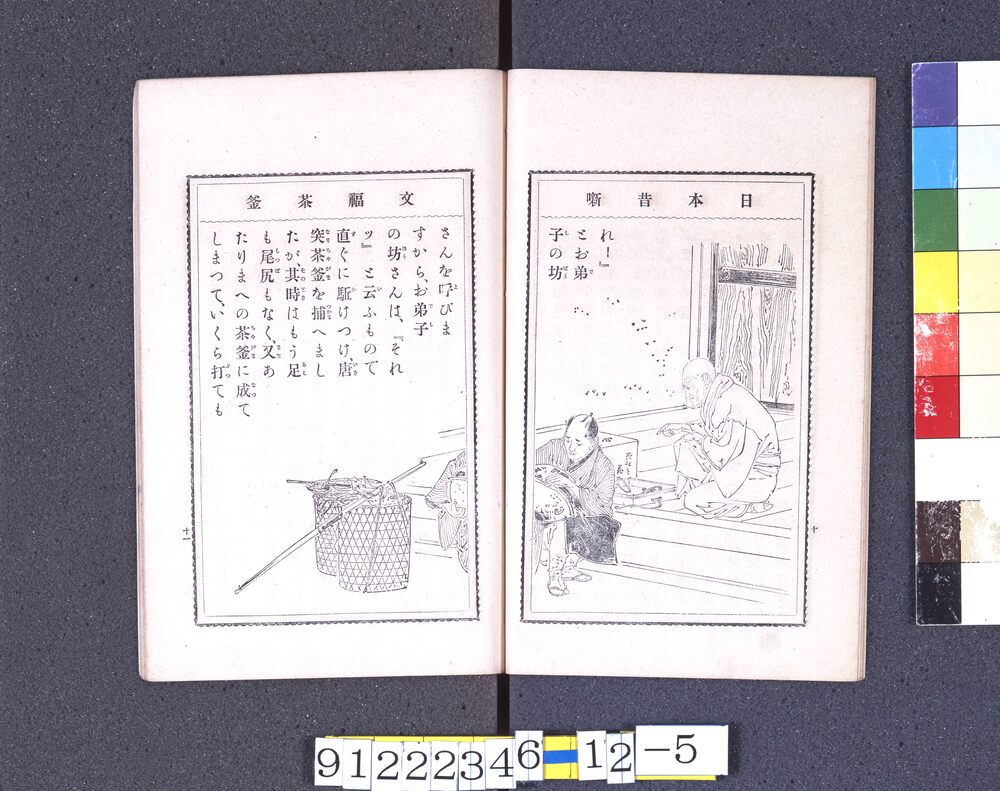 日本昔噺
れ！』
とお弟
子の坊
十
文福茶釜
さんを呼びま
すから、お弟子
の坊さんは、『それ
ッ』と云ふもので
直ぐに駈けつけ、唐
突茶釜を捕へまし
たが、其時はもう足
も尾尻もなく、又あ
たりまへの茶釜に成て
しまつて、いくら打ても
十一
91222346-12-5